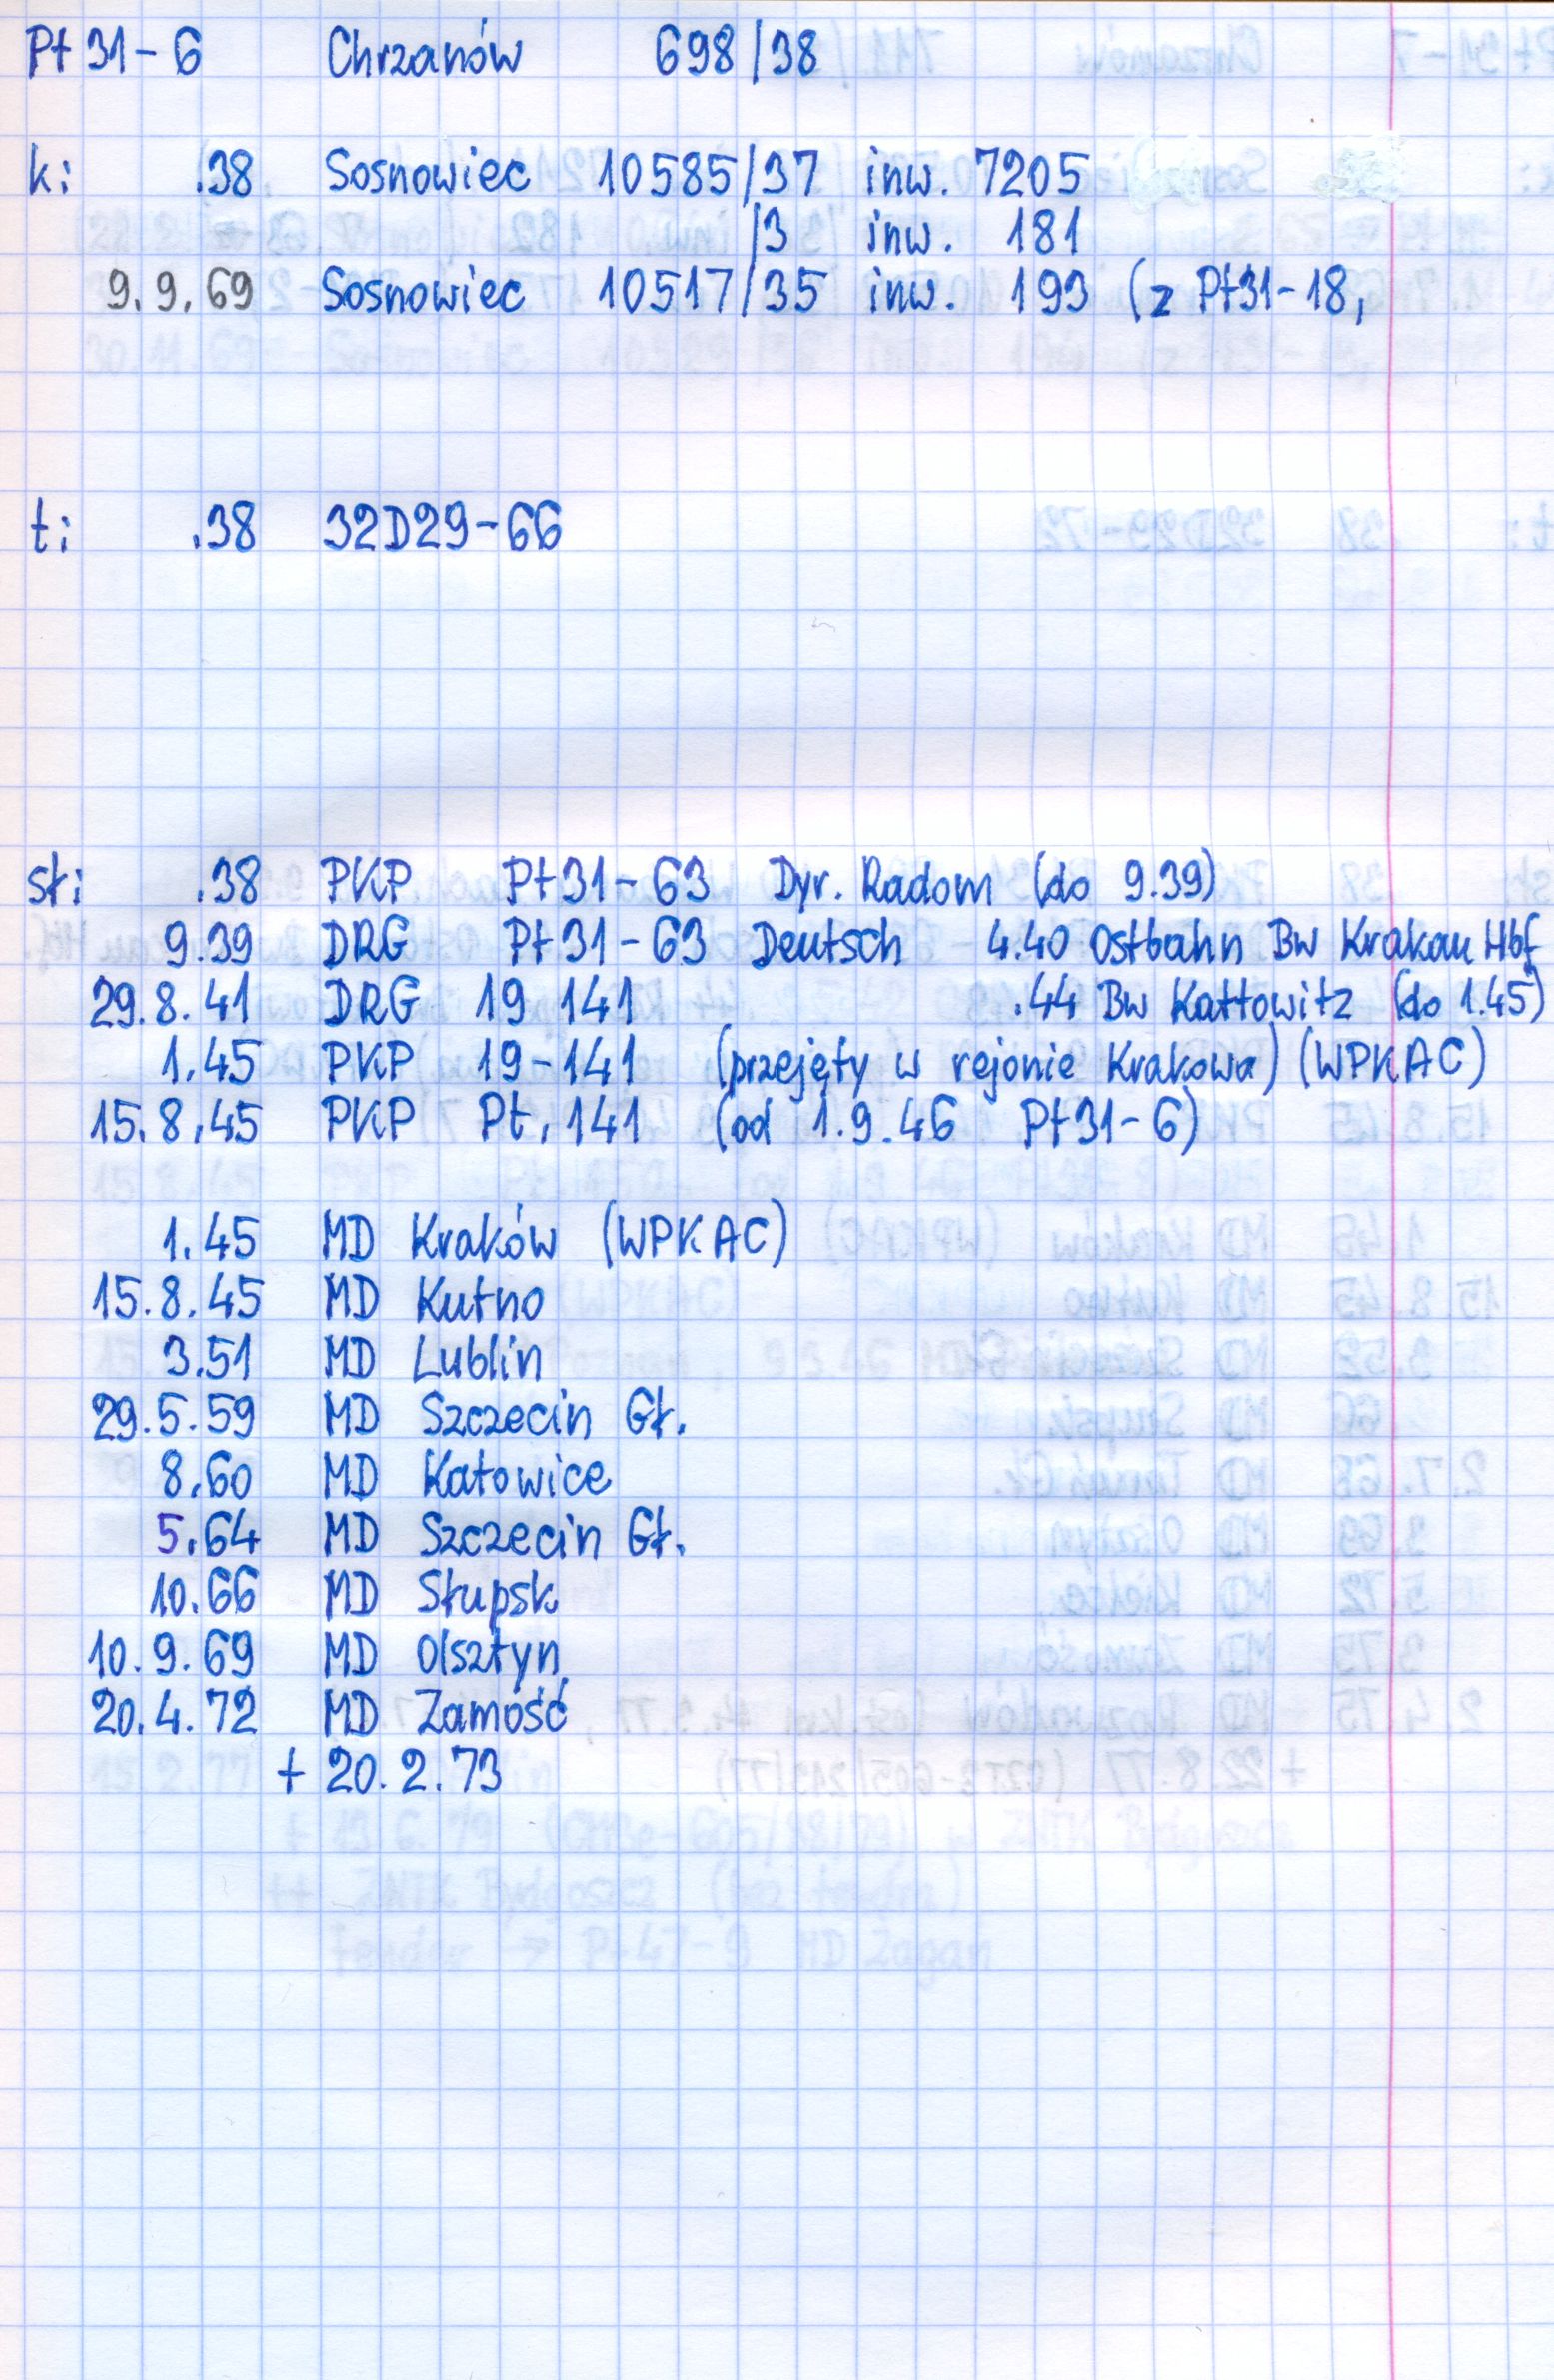 Pt 31-6 Chrzanów 698/38
k: .38 Sosnowiec 10585/37 inw. 7205
/3 inw. 181
9.9.69 Sosnowiec 10517/35 inw. 193 (z Pt31-18,
t: .38 32D29-66
sł: .38 PKP Pt31-63 Dyr. Radom (do 9.39)
9.39 DRG Pt31-63 Deutsch 4.40 Ostbahn Bw Krakau Hbf
29.8.41 DRG 19 141 .44 Bw Kattowitz (do 1.45)
1.45 PKP 19-141 (przejęty w rejonie Krakowa) (WPKAC)
15.8.45 PKP Pt.141 (od 1.9.46 Pt31-6)
1.45 MD Kraków (WPKAC)
15.8.45 MD Kutno
3.51 MD Lublin
29.5.59 MD Szczecin Gł.
8.60 MD Katowice
5.64 MD Szczecin Gł.
10.66 MD Słupsk
10.9.69 MD Olsztyn
20.4.72 MD Zamość
+ 20.2.73